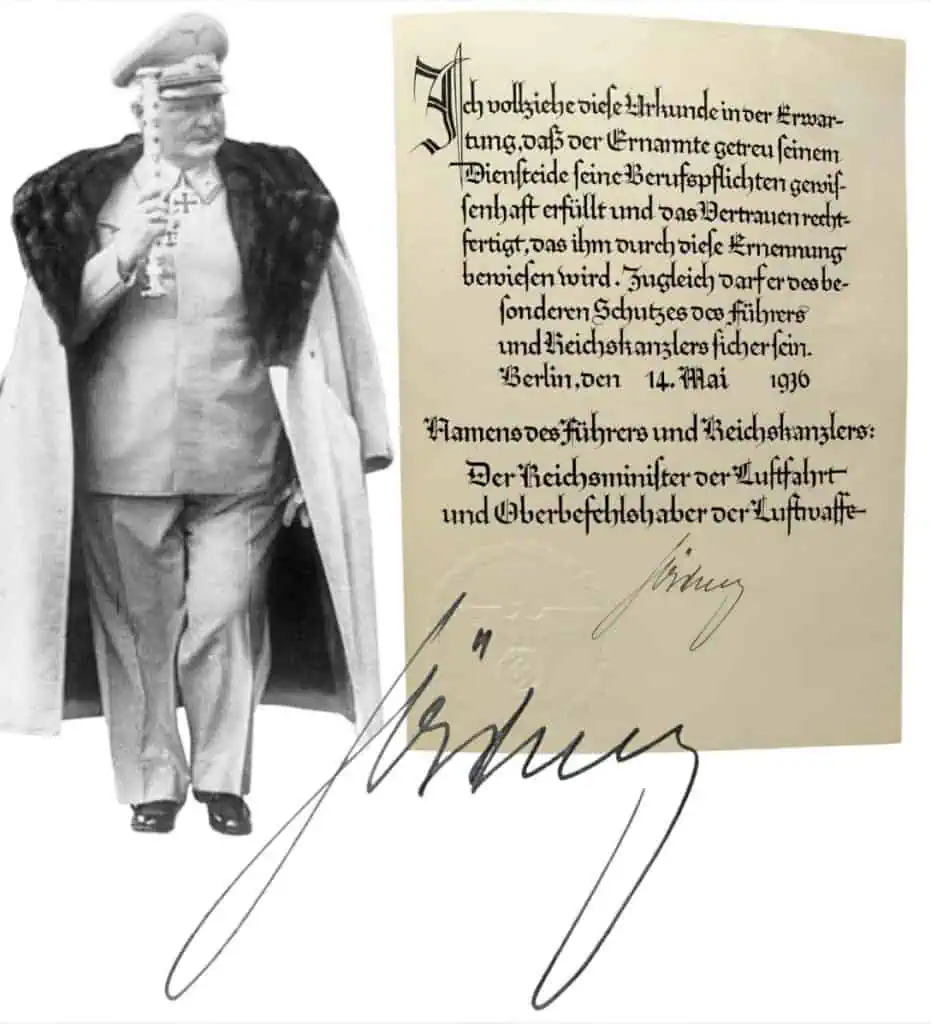 Ich vollziehe diese Urkunde in der Erwar-
tung, daß der Ernannte getreu seinem
Diensteide seine Berufspflichten gewis-
senhaft erfüllt und das Vertrauen recht-
fertigt, das ihm durch diese Ernennung
bewiesen wird. Zugleich darf er des be-
sonderen Schutzes des Führers
und Reichskanzlers sicher sein.
Berlin, den 14. Mai 1936
Namens des Führers und Reichskanzlers:
Der Reichsminister der Luftfahrt
und Oberbefehlshaber der Luftwaffe
Göring
Göring